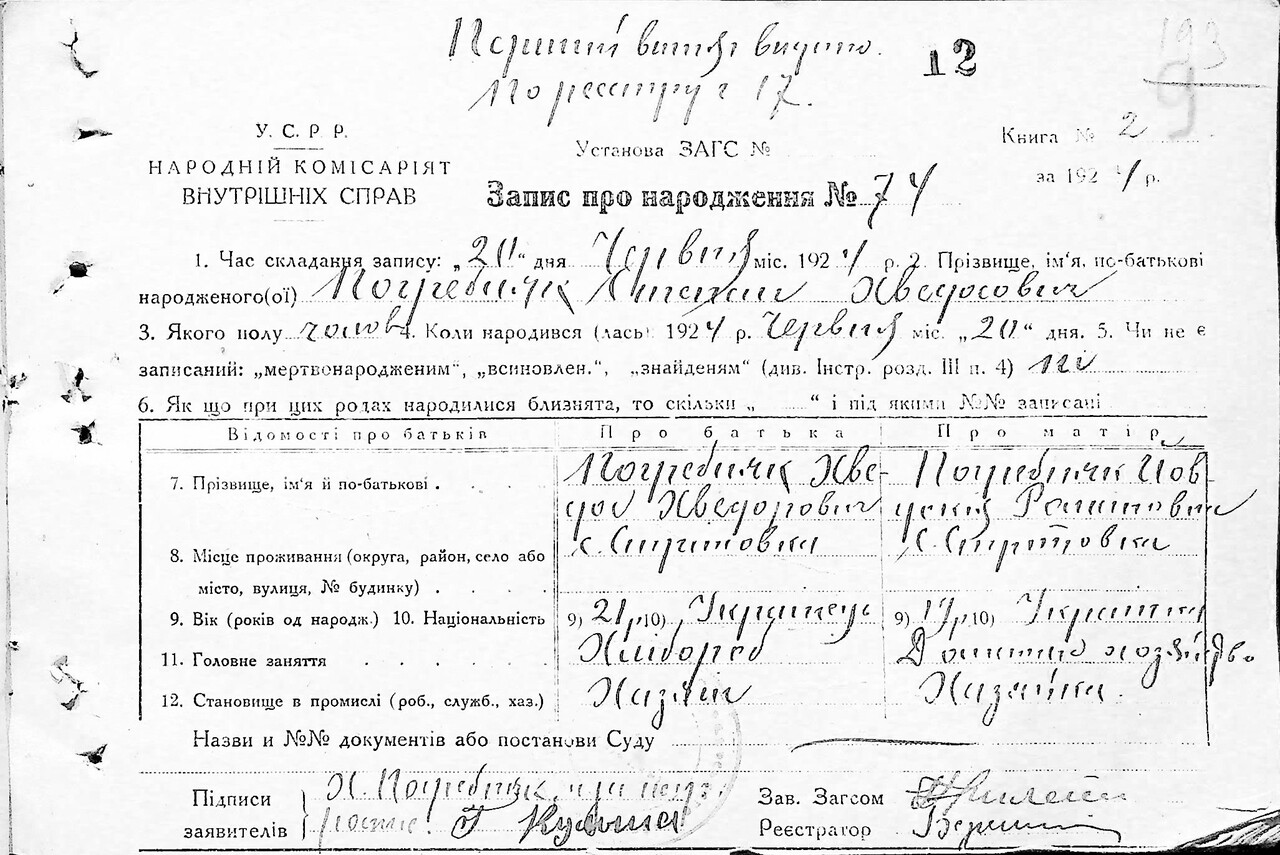 Перший витяг видано.
По реєстру № 17.
12
193
9
У. С. Р. Р.
НАРОДНІЙ КОМІСАРІЯТ
ВНУТРІШНІХ СПРАВ
Установа ЗАГС №
Книга № 2
за 1924 р.
Запис про народження № 74
1. Час складання запису: „20“ дня Червня міс. 1924 р. 2. Прізвище, ім'я, по-батькові
народженого(ої) Погребняк Хведосович
3. Якого полу чолов. 4. Коли народився (лась) 1924 р. Червня міс. „20“ дня. 5. Чи не є
записаний: „мертвонародженим“, „всиновлен.“, „знайденям“ (див. Інстр. розд. III п. 4) ні
6. Як що при цих родах народилися близнята, то скільки „ “ і під якими №№ записані
Відомості про батьків Про батька Про матір
7. Прізвище, ім'я й по-батькові . . . . Погребняк Хве- Погребняк Йов-
дос Хведорович Романовна
8. Місце проживання (округа, район, село або с. с.
місто, вулиця, № будинку) . . . .
9. Вік (років од народж.) 10. Національність 9) 21 р. 10) Українець 9) 19 р. 10) Українка
11. Головне заняття . . . . . Хлібороб Домашнє хозяйство
12. Становище в промислі (роб., служб., хаз.) Хазяїн Хазяйка.
Назви и №№ документів або постанови Суду
Підписи Х. Погребняк, а за
заявителів
Зав. Загсом
Реєстратор